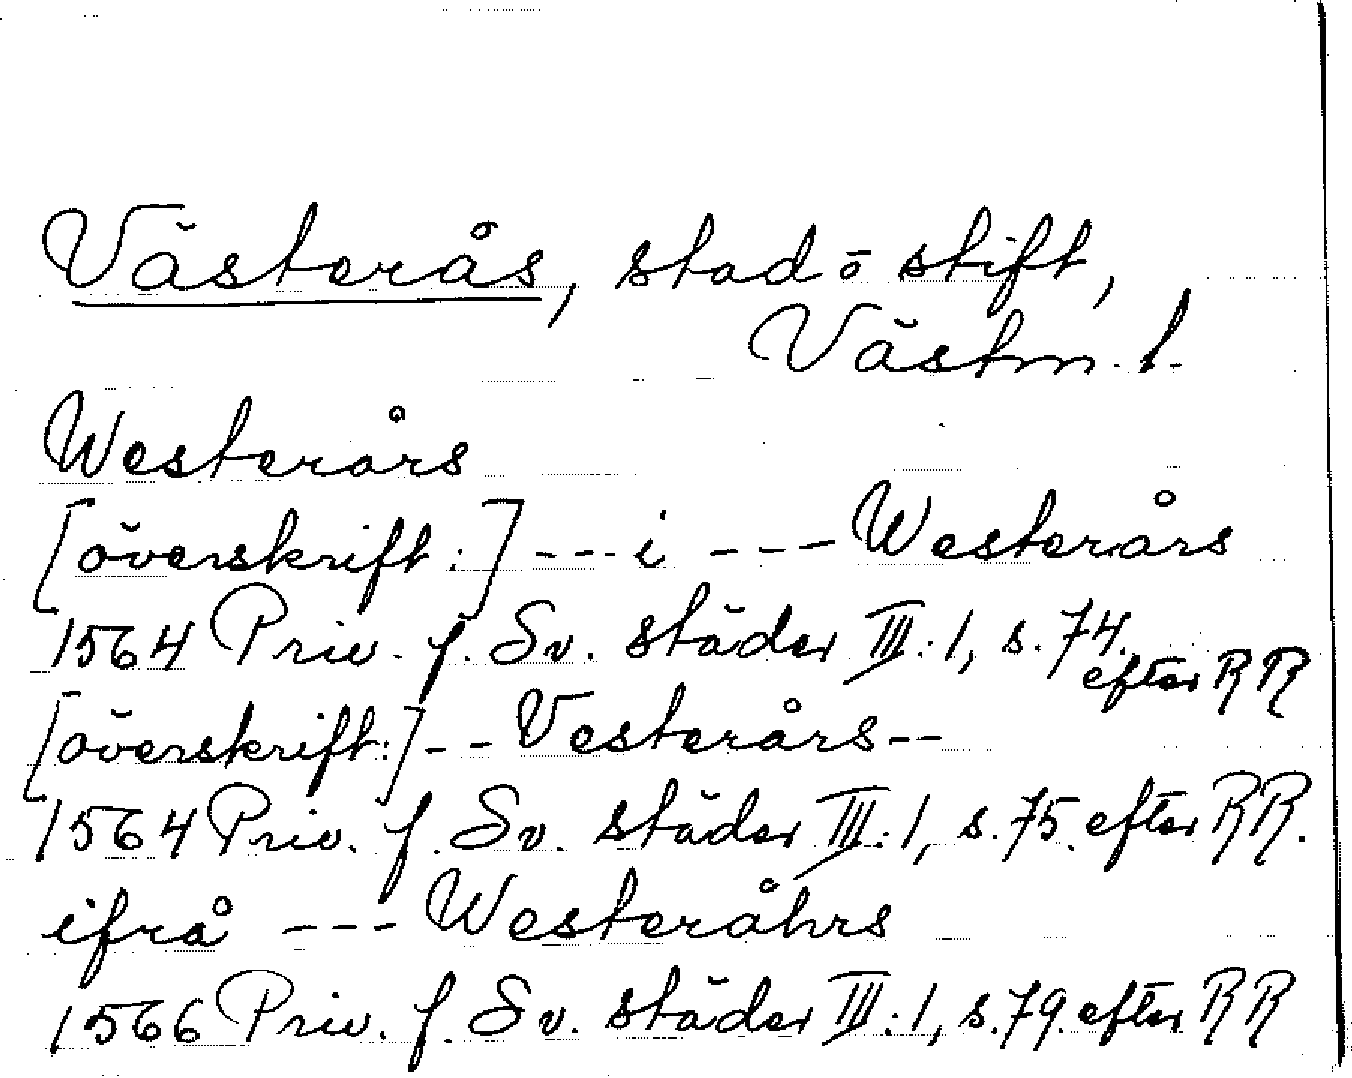 Västerås, stad o stift,
Västm. l.
Westerårs
[överskrift:] --- i --- Westerårs
1564 Priv. f. Sv. städer III:1, s. 74.
efter RR
[överskrift:] -- Vesterårs --
1564 Priv. f. Sv. städer III:1, s. 75. efter RR.
ifrå --- Westeråhrs
1566 Priv. f. Sv. städer III:1, s. 79. efter RR